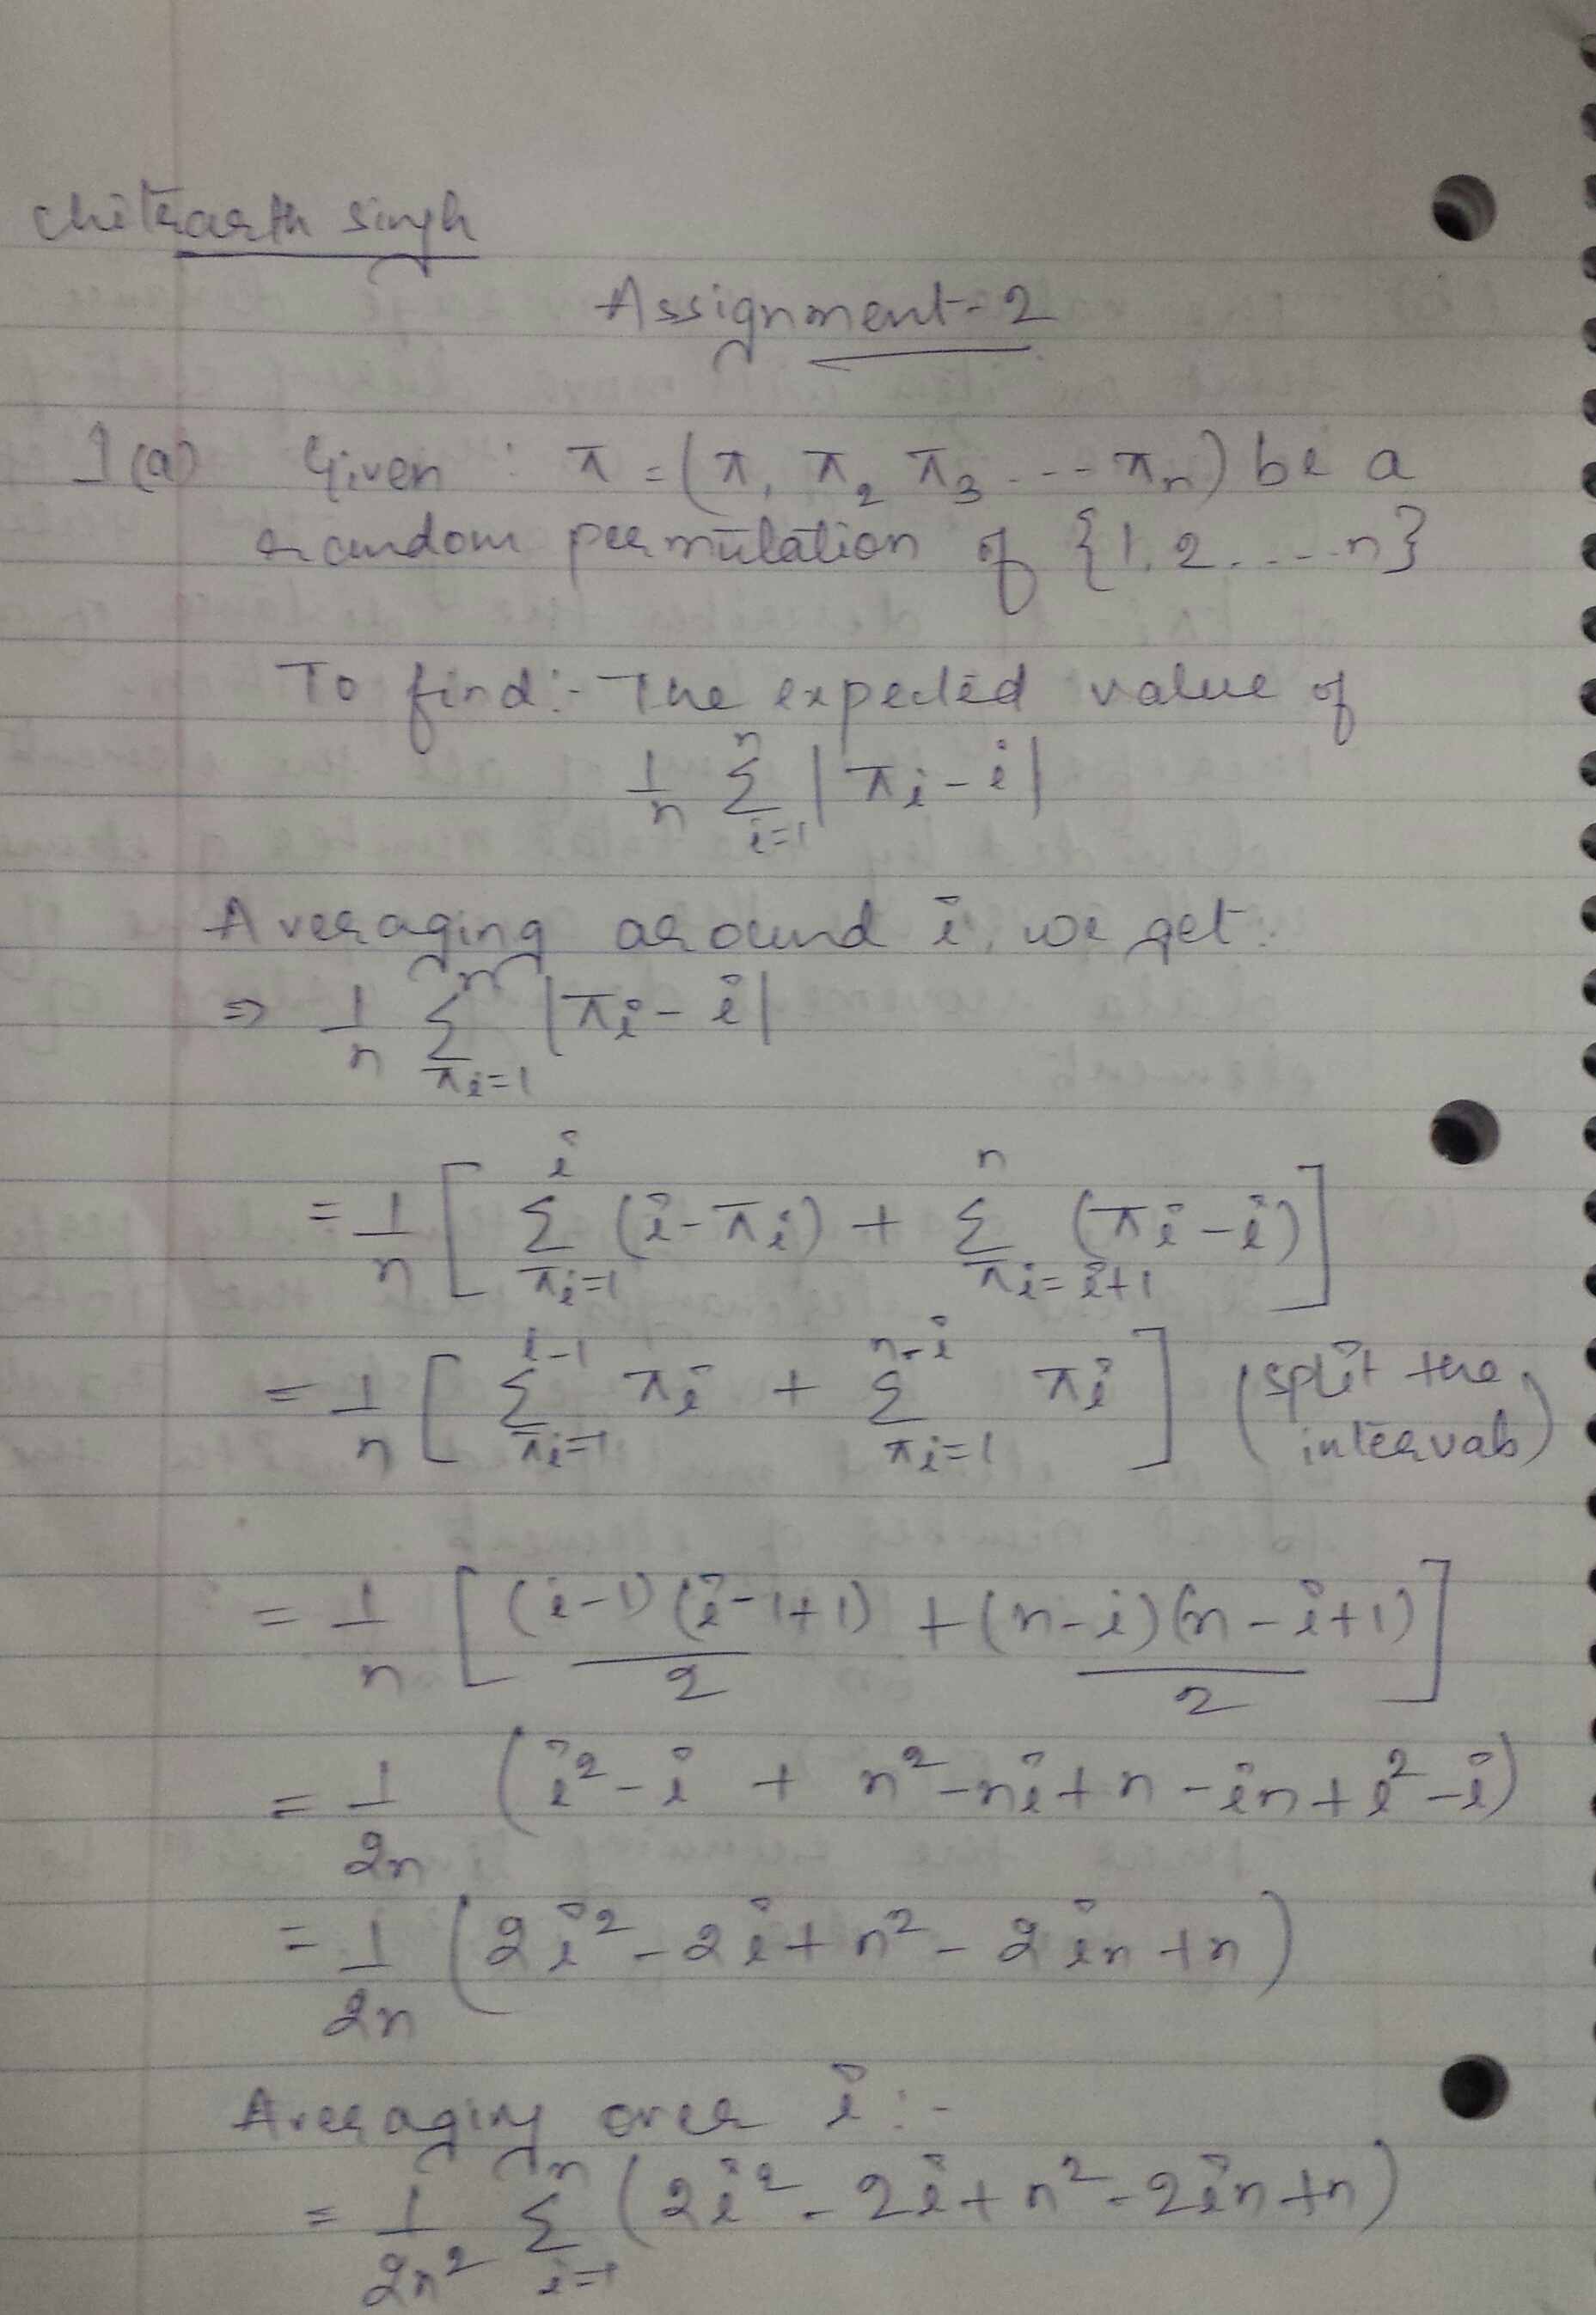 Chitrarth Singh
Assignment-2
1(a) Given : π = (π₁ π₂ π₃ --- πₙ) be a
random permutation of {1, 2. ... n}
To find:- The expected value of
1/n Σ_{i=1}^{n} |πᵢ - i|
Averaging around i, we get:
⇒ 1/n Σ_{πᵢ=1}^{n} |πᵢ - i|
= 1/n [ Σ_{πᵢ=1}^{i} (i - πᵢ) + Σ_{πᵢ=i+1}^{n} (πᵢ - i) ]
= 1/n [ Σ_{πᵢ=1}^{i-1} πᵢ + Σ_{πᵢ=1}^{n-i} πᵢ ] (split the intervals)
= 1/n [ (i-1)(i-1+1)/2 + (n-i)(n-i+1)/2 ]
= 1/2n (i² - i + n² - ni + n - in + i² - i)
= 1/2n (2i² - 2i + n² - 2in + n)
Averaging over i :-
= 1/2n² Σ_{i=1}^{n} (2i² - 2i + n² - 2in + n)